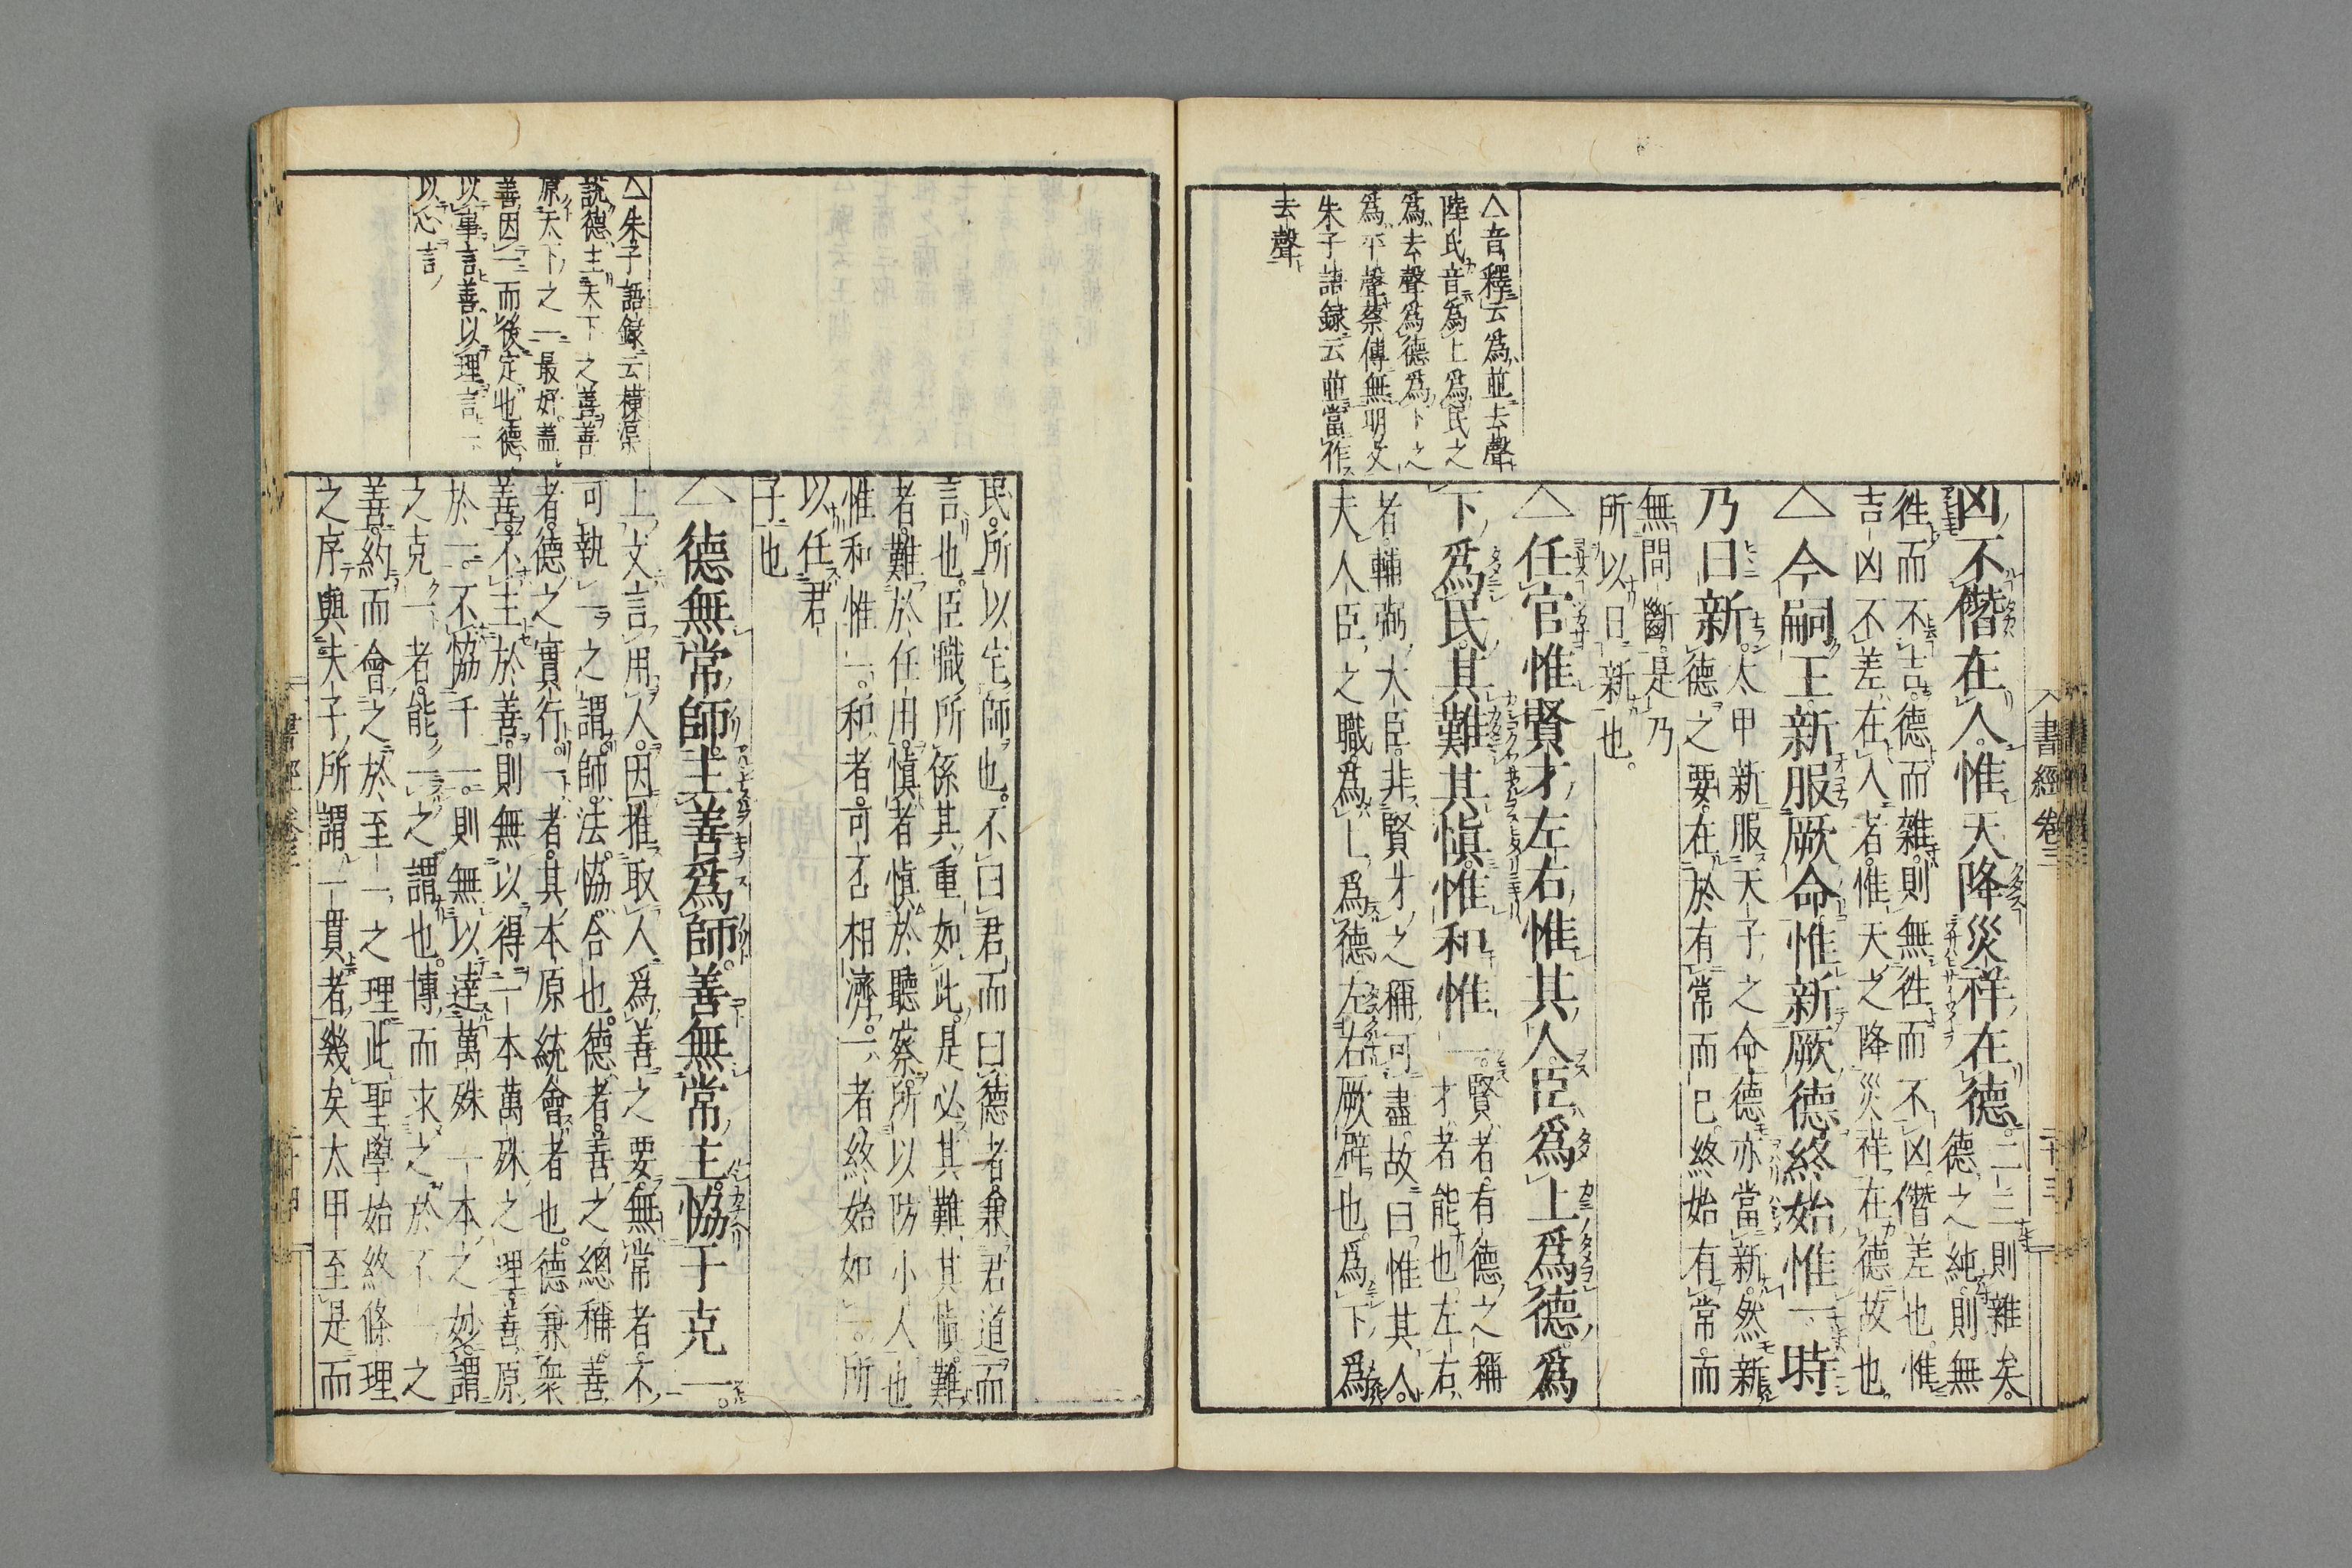 書經卷三
二十三
凶不僭在人惟天降災祥在德。二三則雜矣。
德之純則無
徃而不吉。德而雜。則無徃而不凶。僭差也。惟
吉凶不差在人者。惟天之降災祥在德故也。
△今嗣王新服厥命惟新厥德終始惟一時
乃日新。太甲新服天子之命德亦當新。然新
德之要在於有常而已終始有常。而
無間斷。是乃
所以日新也。
△任官惟賢才左右惟其人。臣爲上爲德。爲
下爲民。其難其愼。惟和惟一。賢者。有德之稱
才者能也。左右
者。輔弼大臣。非賢才之稱可盡。故曰惟其人。
夫人臣之職。爲上爲德左右厥辟也。爲下爲
△音釋云爲並去聲
陸氏音爲上爲民之
爲去聲爲德爲下之
爲平聲蔡傳無明文
朱子語録云並當作
去聲
民。所以宅師也。不曰君而曰德者。兼君道而
言也。臣職所係其重如此。是必其難其愼。難
者。難於任用。愼者愼於聽察。所以防小人也
惟和惟一。和者。可否相濟。一者終始如一。所
以任君
子也
△德無常師。主善爲師。善無常主。恊于克一。
上文言用人。因推取人爲善之要。無常者。不
可執一之謂。師。法。恊合也。德者。善之總稱。善
者。德之實行。一者。其本原統會者也。德兼衆
善。不主於善。則無以得一本萬殊之理。善原
於一。不恊于一。則無以達萬殊一本之妙。謂
之克一者。能一之謂也。博而求之於不一之
善。約而會之於至一之理。此聖學始終條理
之序與夫子所謂一貫者幾矣太甲至是而
△朱子語録云橫渠
說德主天下之善善
原天下之一最好。蓋
善因一而後定也德
以事言善以理言一
以心言
書經卷三
二十四